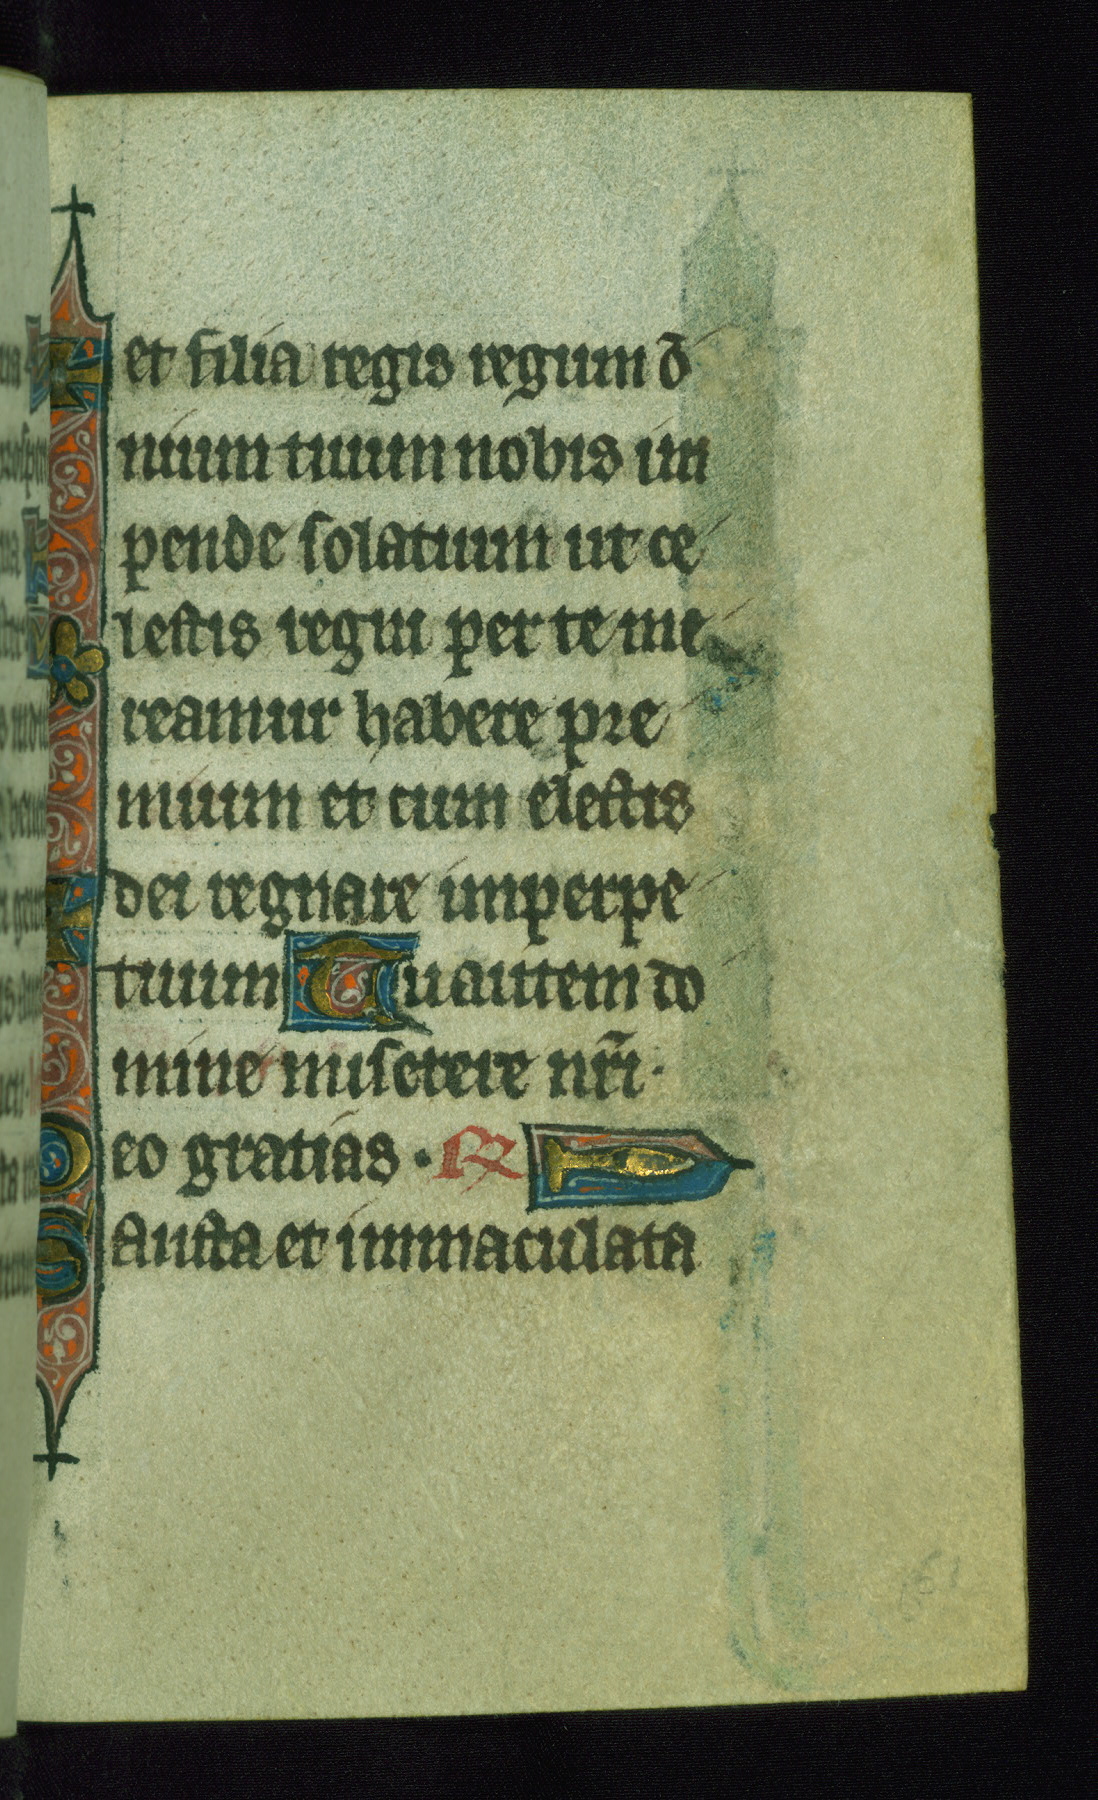 et filia regis regum o᷒
nium tuum nobis im
pende solatium ut ce
lestis regni per te me
reamur habere pre
mium et cum electis
dei regnare imperpe
tuum Tu autem do
mine miserere nr̃i·
Deo gratias · R
Sancta et immaculata